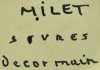 MILET
SEVRES
decor main